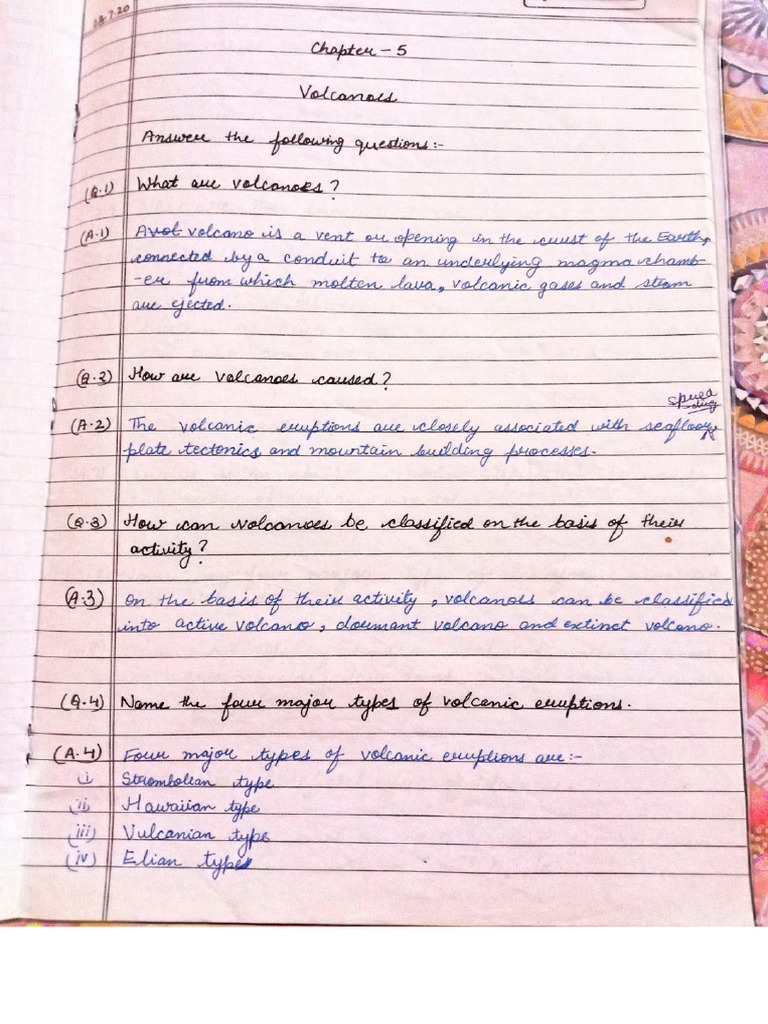 Chapter - 5
Volcanoes
Answer the following questions:-
(Q.1) What are volcanoes?
(A.1) A vol volcano is a vent or opening in the crust of the Earth,
connected by a conduit to an underlying magma chamb-
-er from which molten lava, volcanic gases and steam
are ejected.
(Q.2) How are volcanoes caused?
sprea
-ding
(A.2) The volcanic eruptions are closely associated with seafloor,
plate tectonics and mountain building processes.
(Q.3) How can volcanoes be classified on the basis of their
activity?
(A.3) On the basis of their activity, volcanoes can be classified
into active volcano, dormant volcano and extinct volcano.
(Q.4) Name the four major types of volcanic eruptions.
(A.4) Four major types of volcanic eruptions are:-
(i) Strombolean type
(ii) Hawaiian type
(iii) Vulcanian type
(iv) Elian type